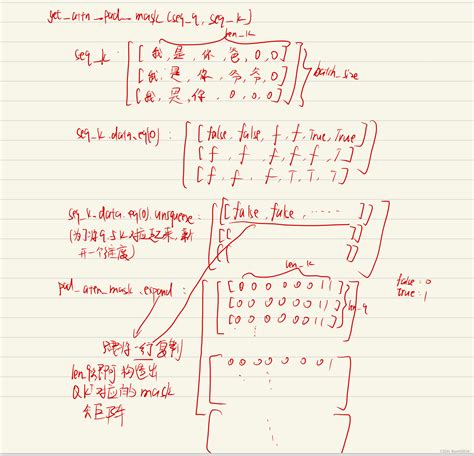 get_attn_pad_mask (seq_q, seq_k)
len_k
seq_k : [[我,是,你,爸,0,0]
[我,是,你,爷,爷,0]
[我,是,你,0,0,0]]
batch_size
seq_k.data.eq(0) : [[false,false,f,f,True,True]
[f,f,f,f,f,T]
[f,f,f,T,T,T]]
seq_k.data.eq(0).unsqueeze : [[[false,false,......]]
(为了将q与k对应起来,新 [[ ]]
开一个维度) [[ ]]]
len_k
pad_attn_mask.expand : [[[0 0 0 0 0 0 1 1]
[0 0 0 0 0 0 1 1]
[0 0 0 0 0 0 1 1]
len_q
false:0
true:1
将一行复制
[[0 0 0 0 0 0 1 1]
QK对应的mask
矩阵
CSDN